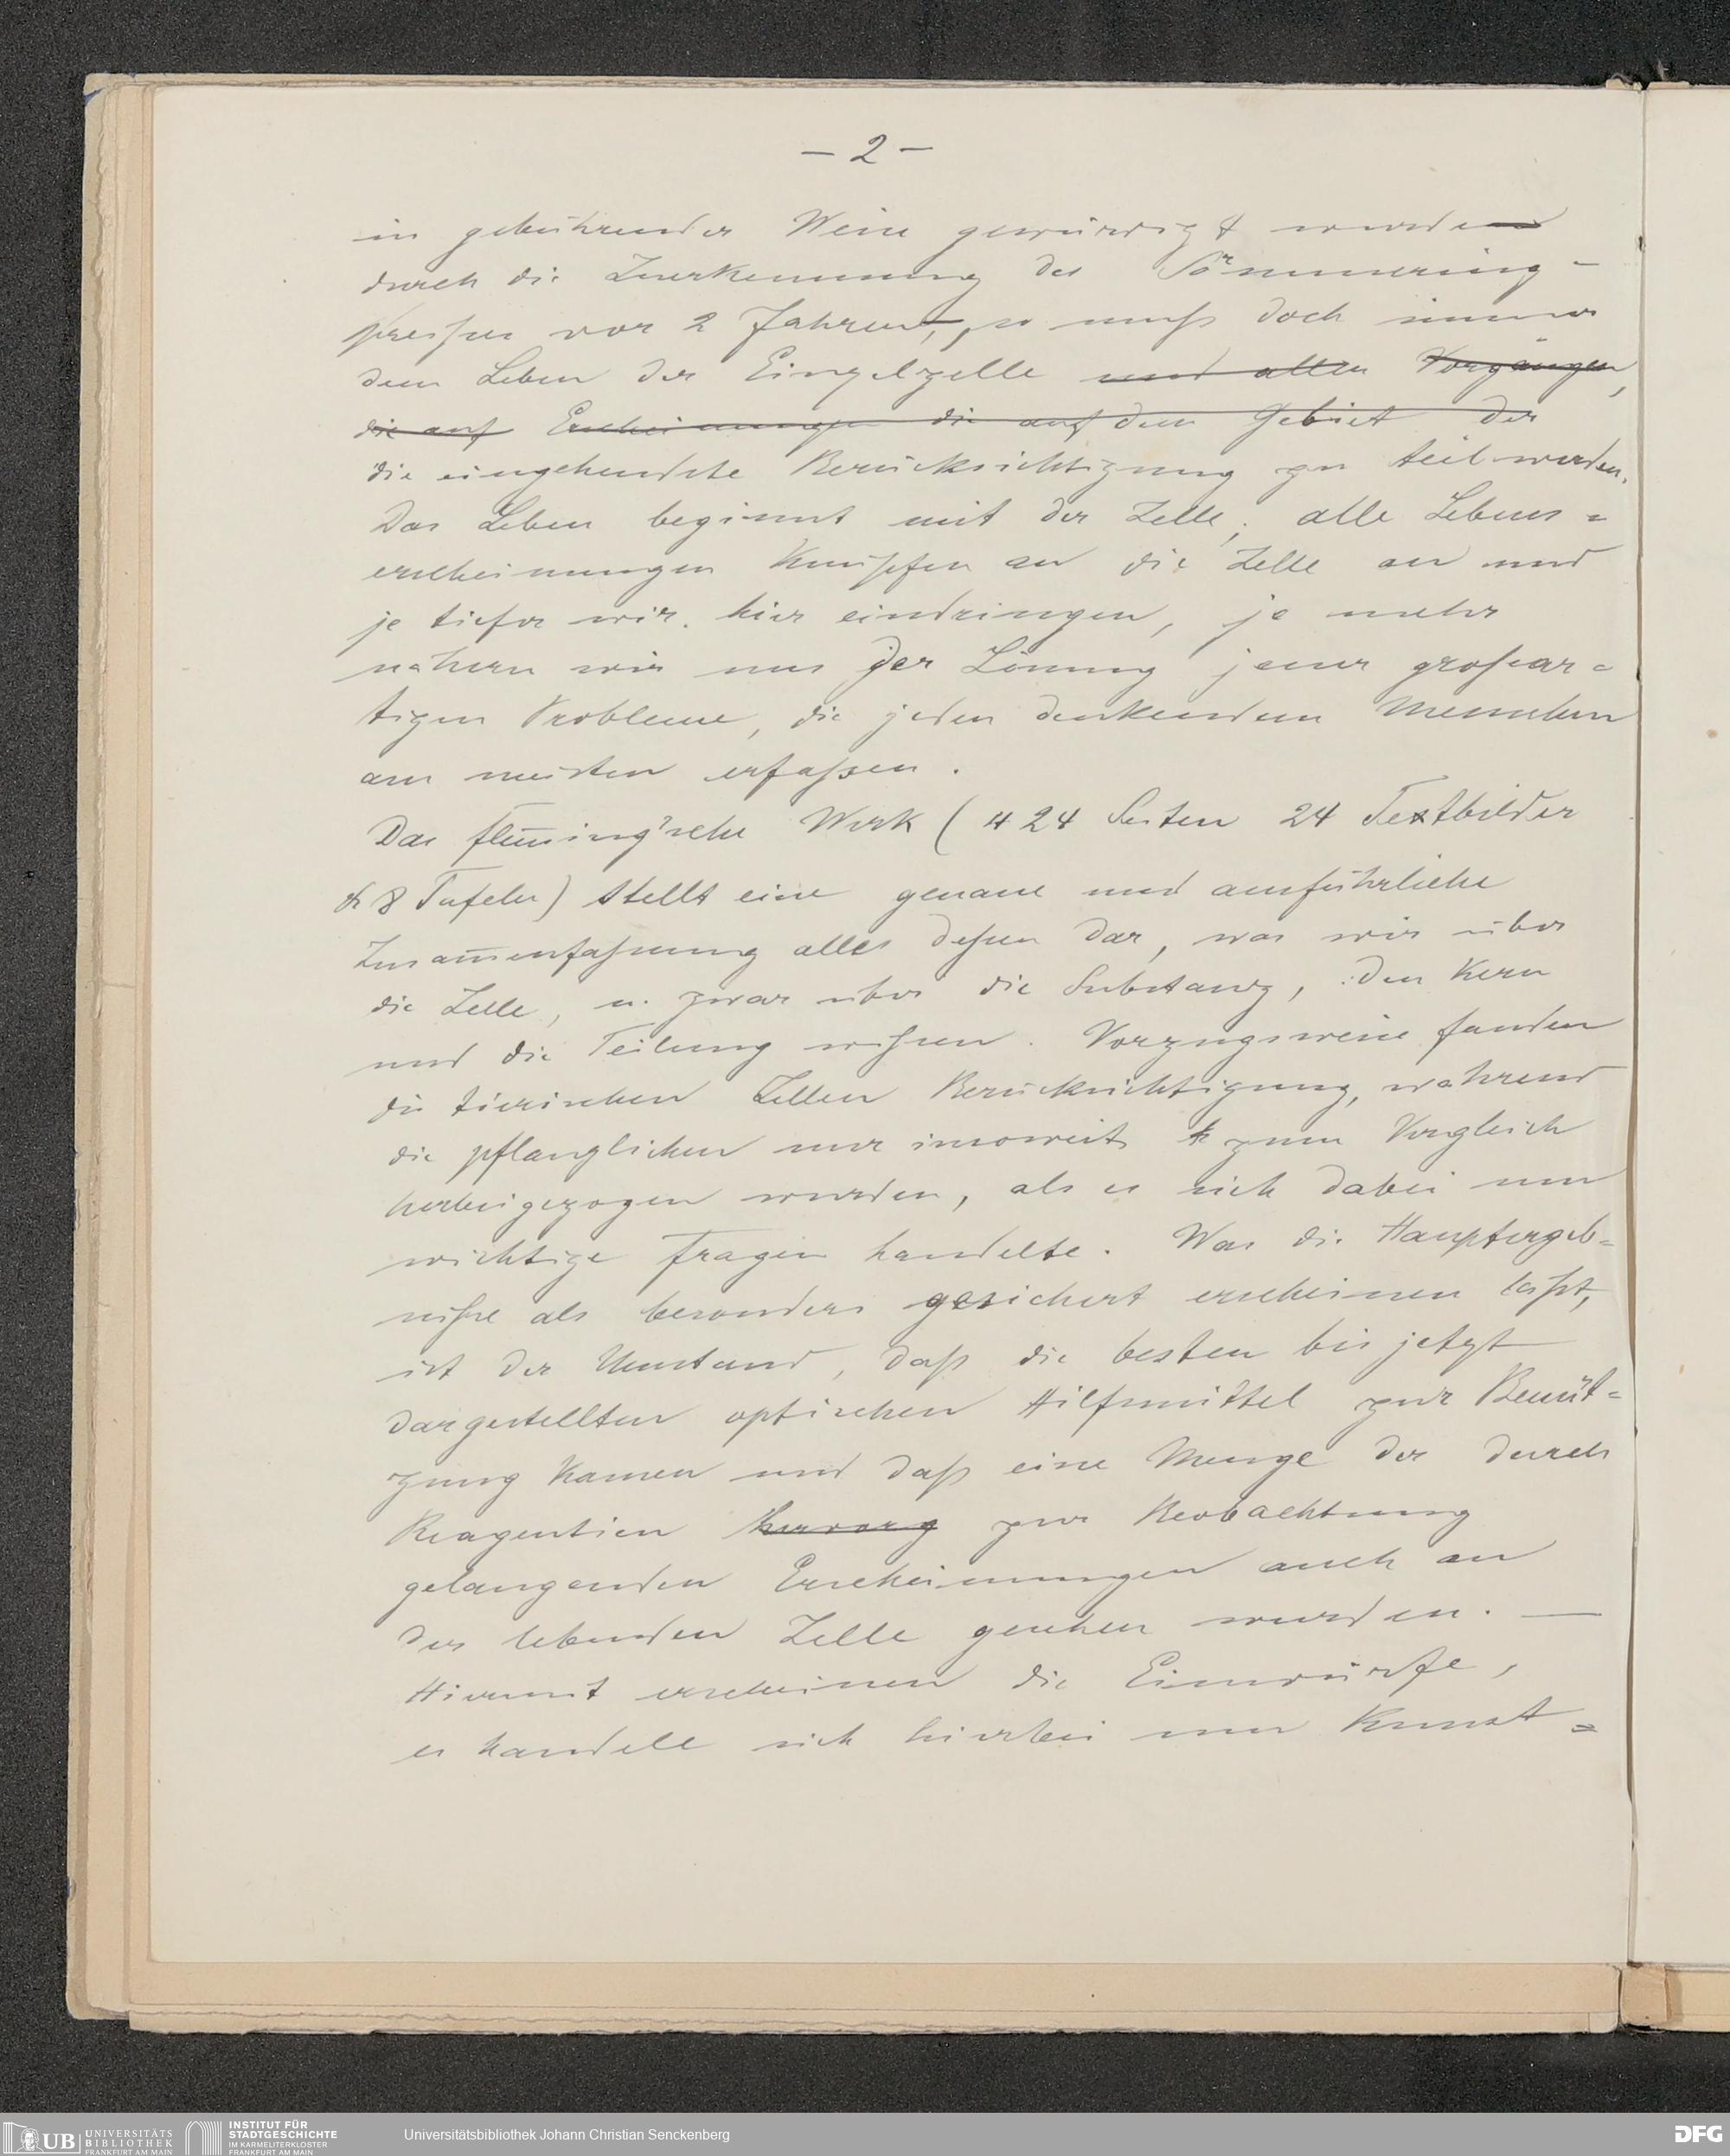 – 2 –
in gebührender Weise gewürdigt wurden
durch die Zuerkennung des Sömmering-
preises vor 2 Jahren, so muß doch immer
dem Leben der Einzelzelle und allen Vorgängen,
die auf Erscheinungen die auf dem Gebiet der
die eingehendste Berücksichtigung zu teil werden.
Das Leben beginnt mit der Zelle, alle Lebens=
erscheinungen knüpfen an die Zelle an und
je tiefer wir hier eindringen, je mehr
nähern wir uns der Lösung jener großar=
tigen Probleme, die jeden denkenden Menschen
am meisten erfaßen.
Das Flem̅ing'sche Werk (424 Seiten 24 Textbilder
& 8 Tafeln) stellt eine genaue und ausführliche
Zusam̅enfaßung alles deßen dar, was wir über
die Zelle, u. zwar über die Substanz, den Kern
und die Teilung wißen. Vorzugsweise fanden
die tierischen Zellen Berücksichtigung, während
die pflanzlichen nur insoweit zum Vergleich
herbeigezogen wurden, als es sich dabei um
wichtige Fragen handelte. Was die Hauptergeb=
niße als besonders gesichert erscheinen läßt,
ist der Umstand, daß die besten bis jetzt
dargestellten optischen Hilfsmittel zur Benüt=
zung kamen und daß eine Menge der durch
Reagentien hervorg zur Beobachtung
gelangenden Erscheinungen auch an
der lebenden Zelle gesehen wurden. —
Hiermit erscheinen die Einwürfe,
es handele sich hierbei um Kunst=
UB UNIVERSITÄTS
BIBLIOTHEK
FRANKFURT AM MAIN
INSTITUT FÜR
STADTGESCHICHTE
IM KARMELITERKLOSTER
FRANKFURT AM MAIN
Universitätsbibliothek Johann Christian Senckenberg
DFG